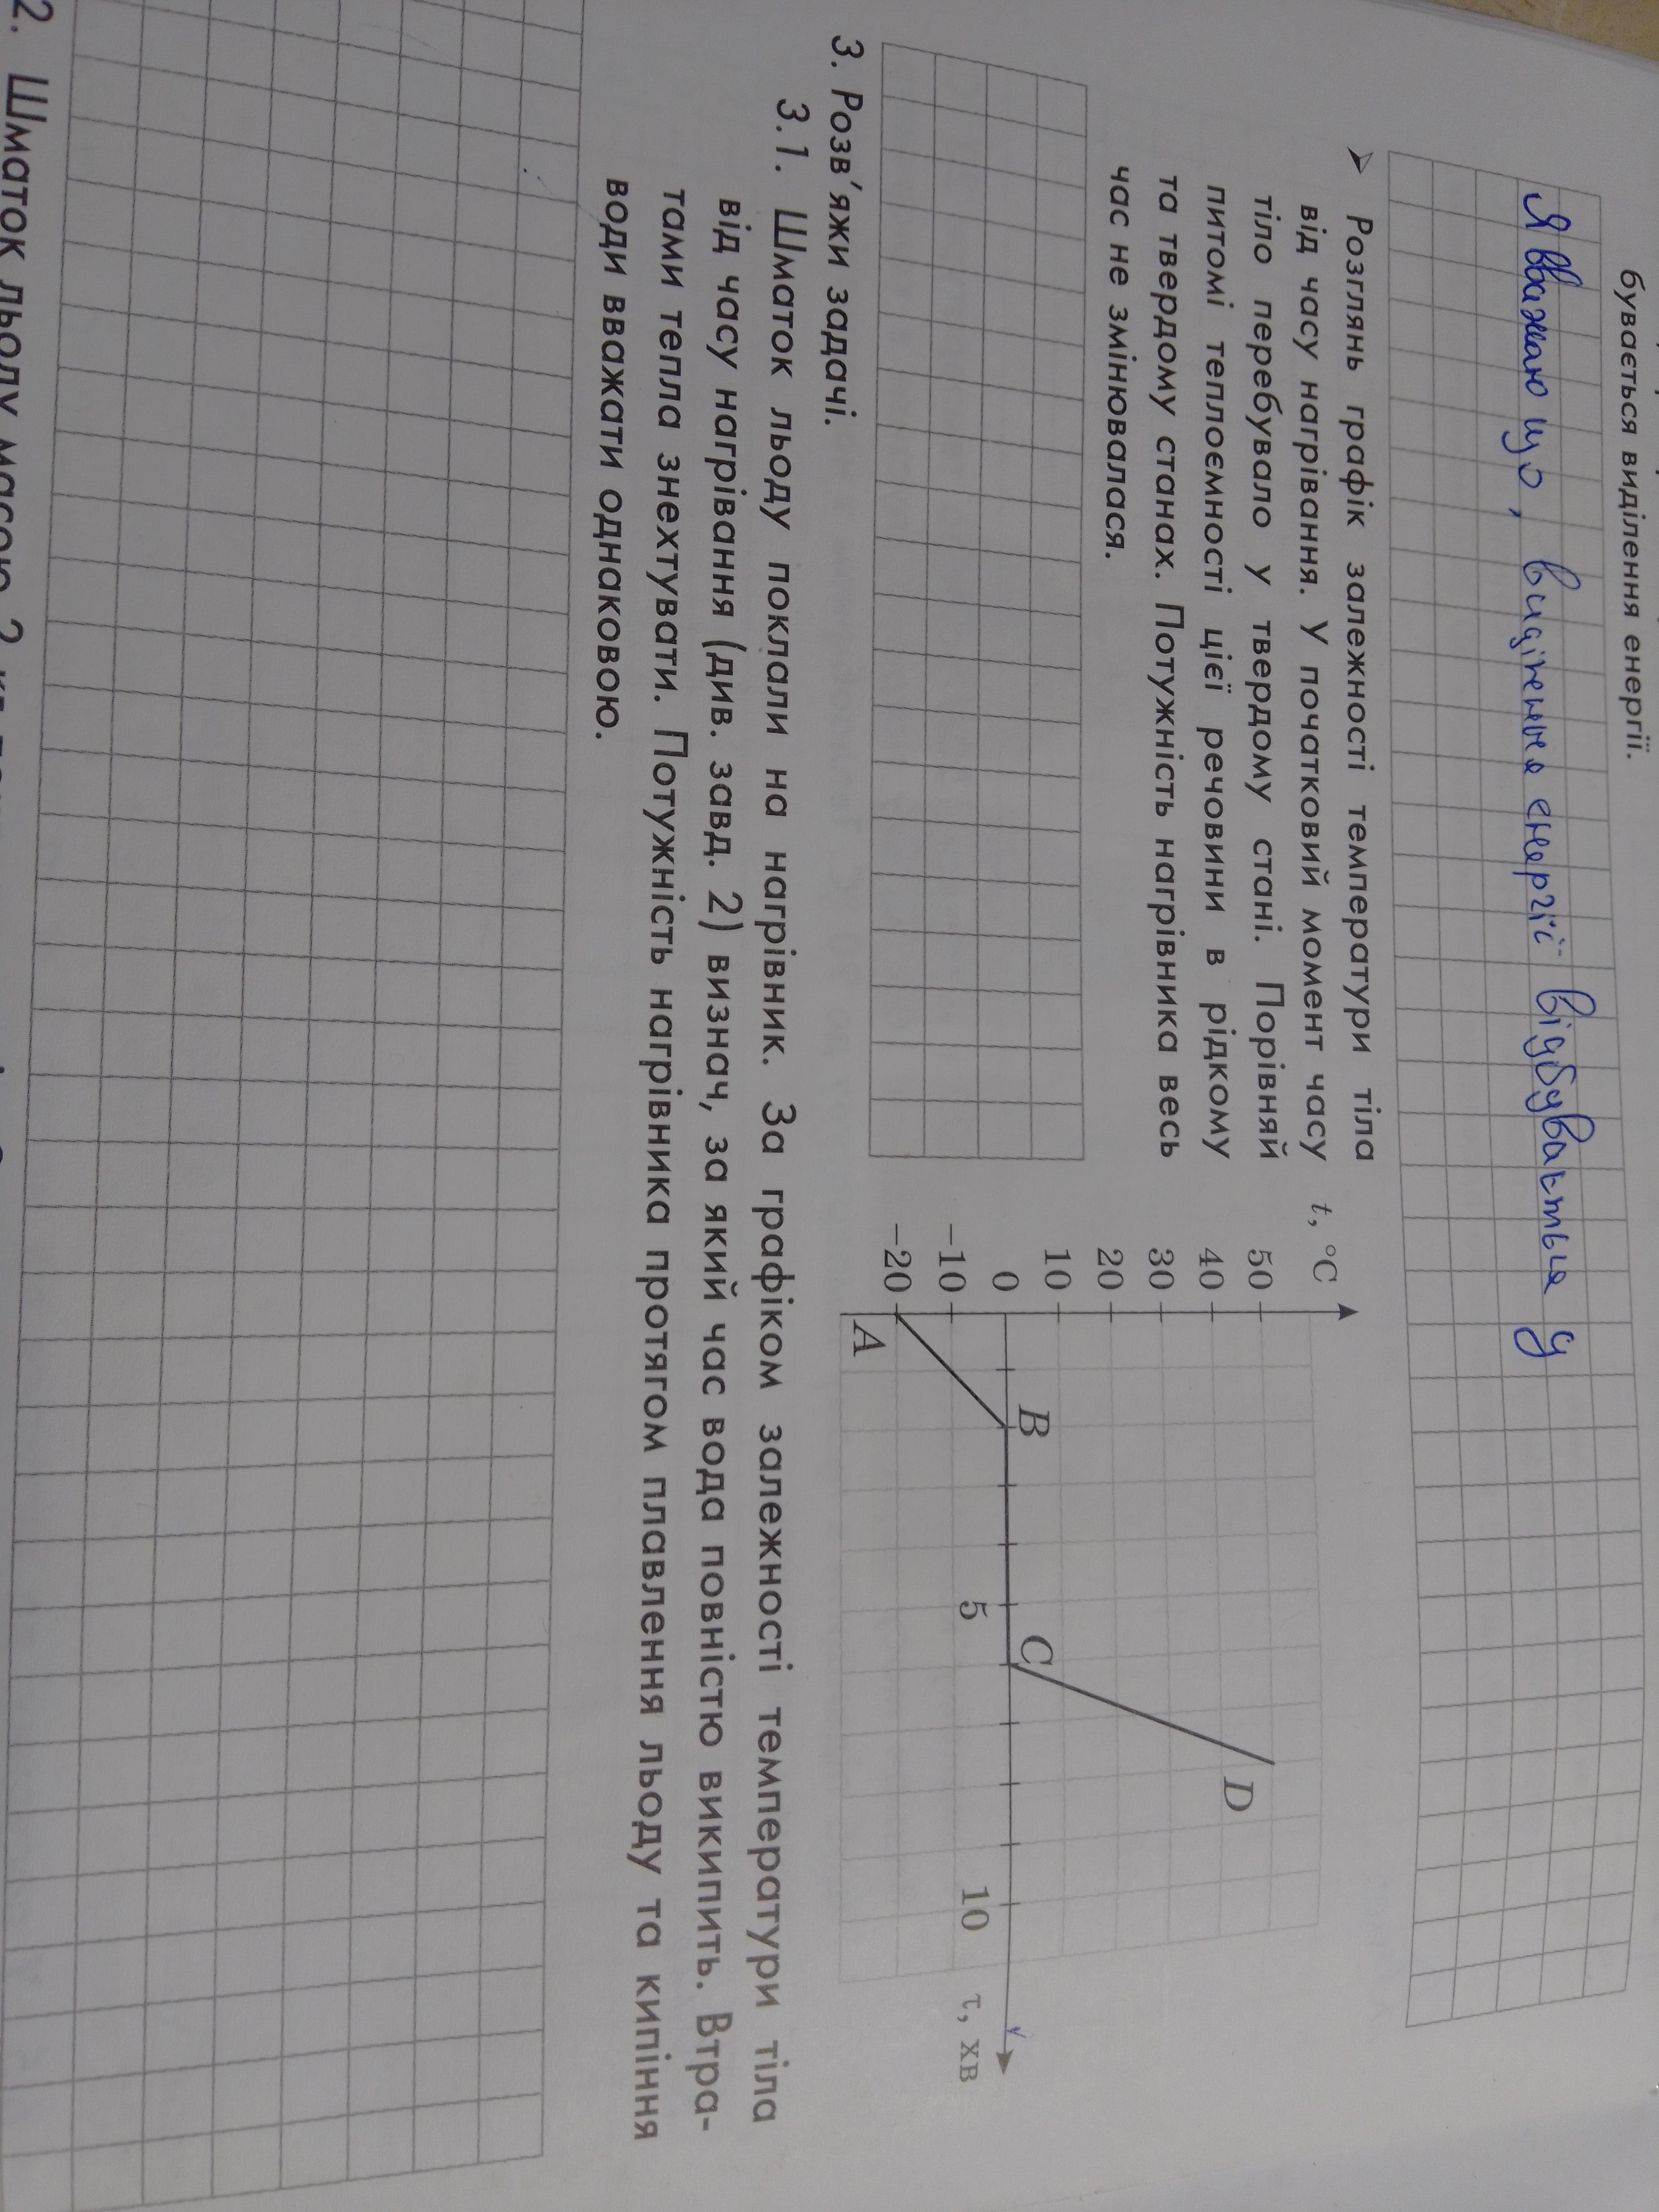 бувається виділення енергії.
Я вважаю що, виділення енергії відбувається у
➢ Розглянь графік залежності температури тіла
від часу нагрівання. У початковий момент часу
тіло перебувало у твердому стані. Порівняй
питомі теплоємності цієї речовини в рідкому
та твердому станах. Потужність нагрівника весь
час не змінювалася.
t, °C
50
40
30
20
10
0
−10
−20
A
B
C
D
5
10
τ, хв
3. Розв’яжи задачі.
3.1. Шматок льоду поклали на нагрівник. За графіком залежності температури тіла
від часу нагрівання (див. завд. 2) визнач, за який час вода повністю википить. Втра-
тами тепла знехтувати. Потужність нагрівника протягом плавлення льоду та кипіння
води вважати однаковою.
2. Шматок льоду масою 2 кг